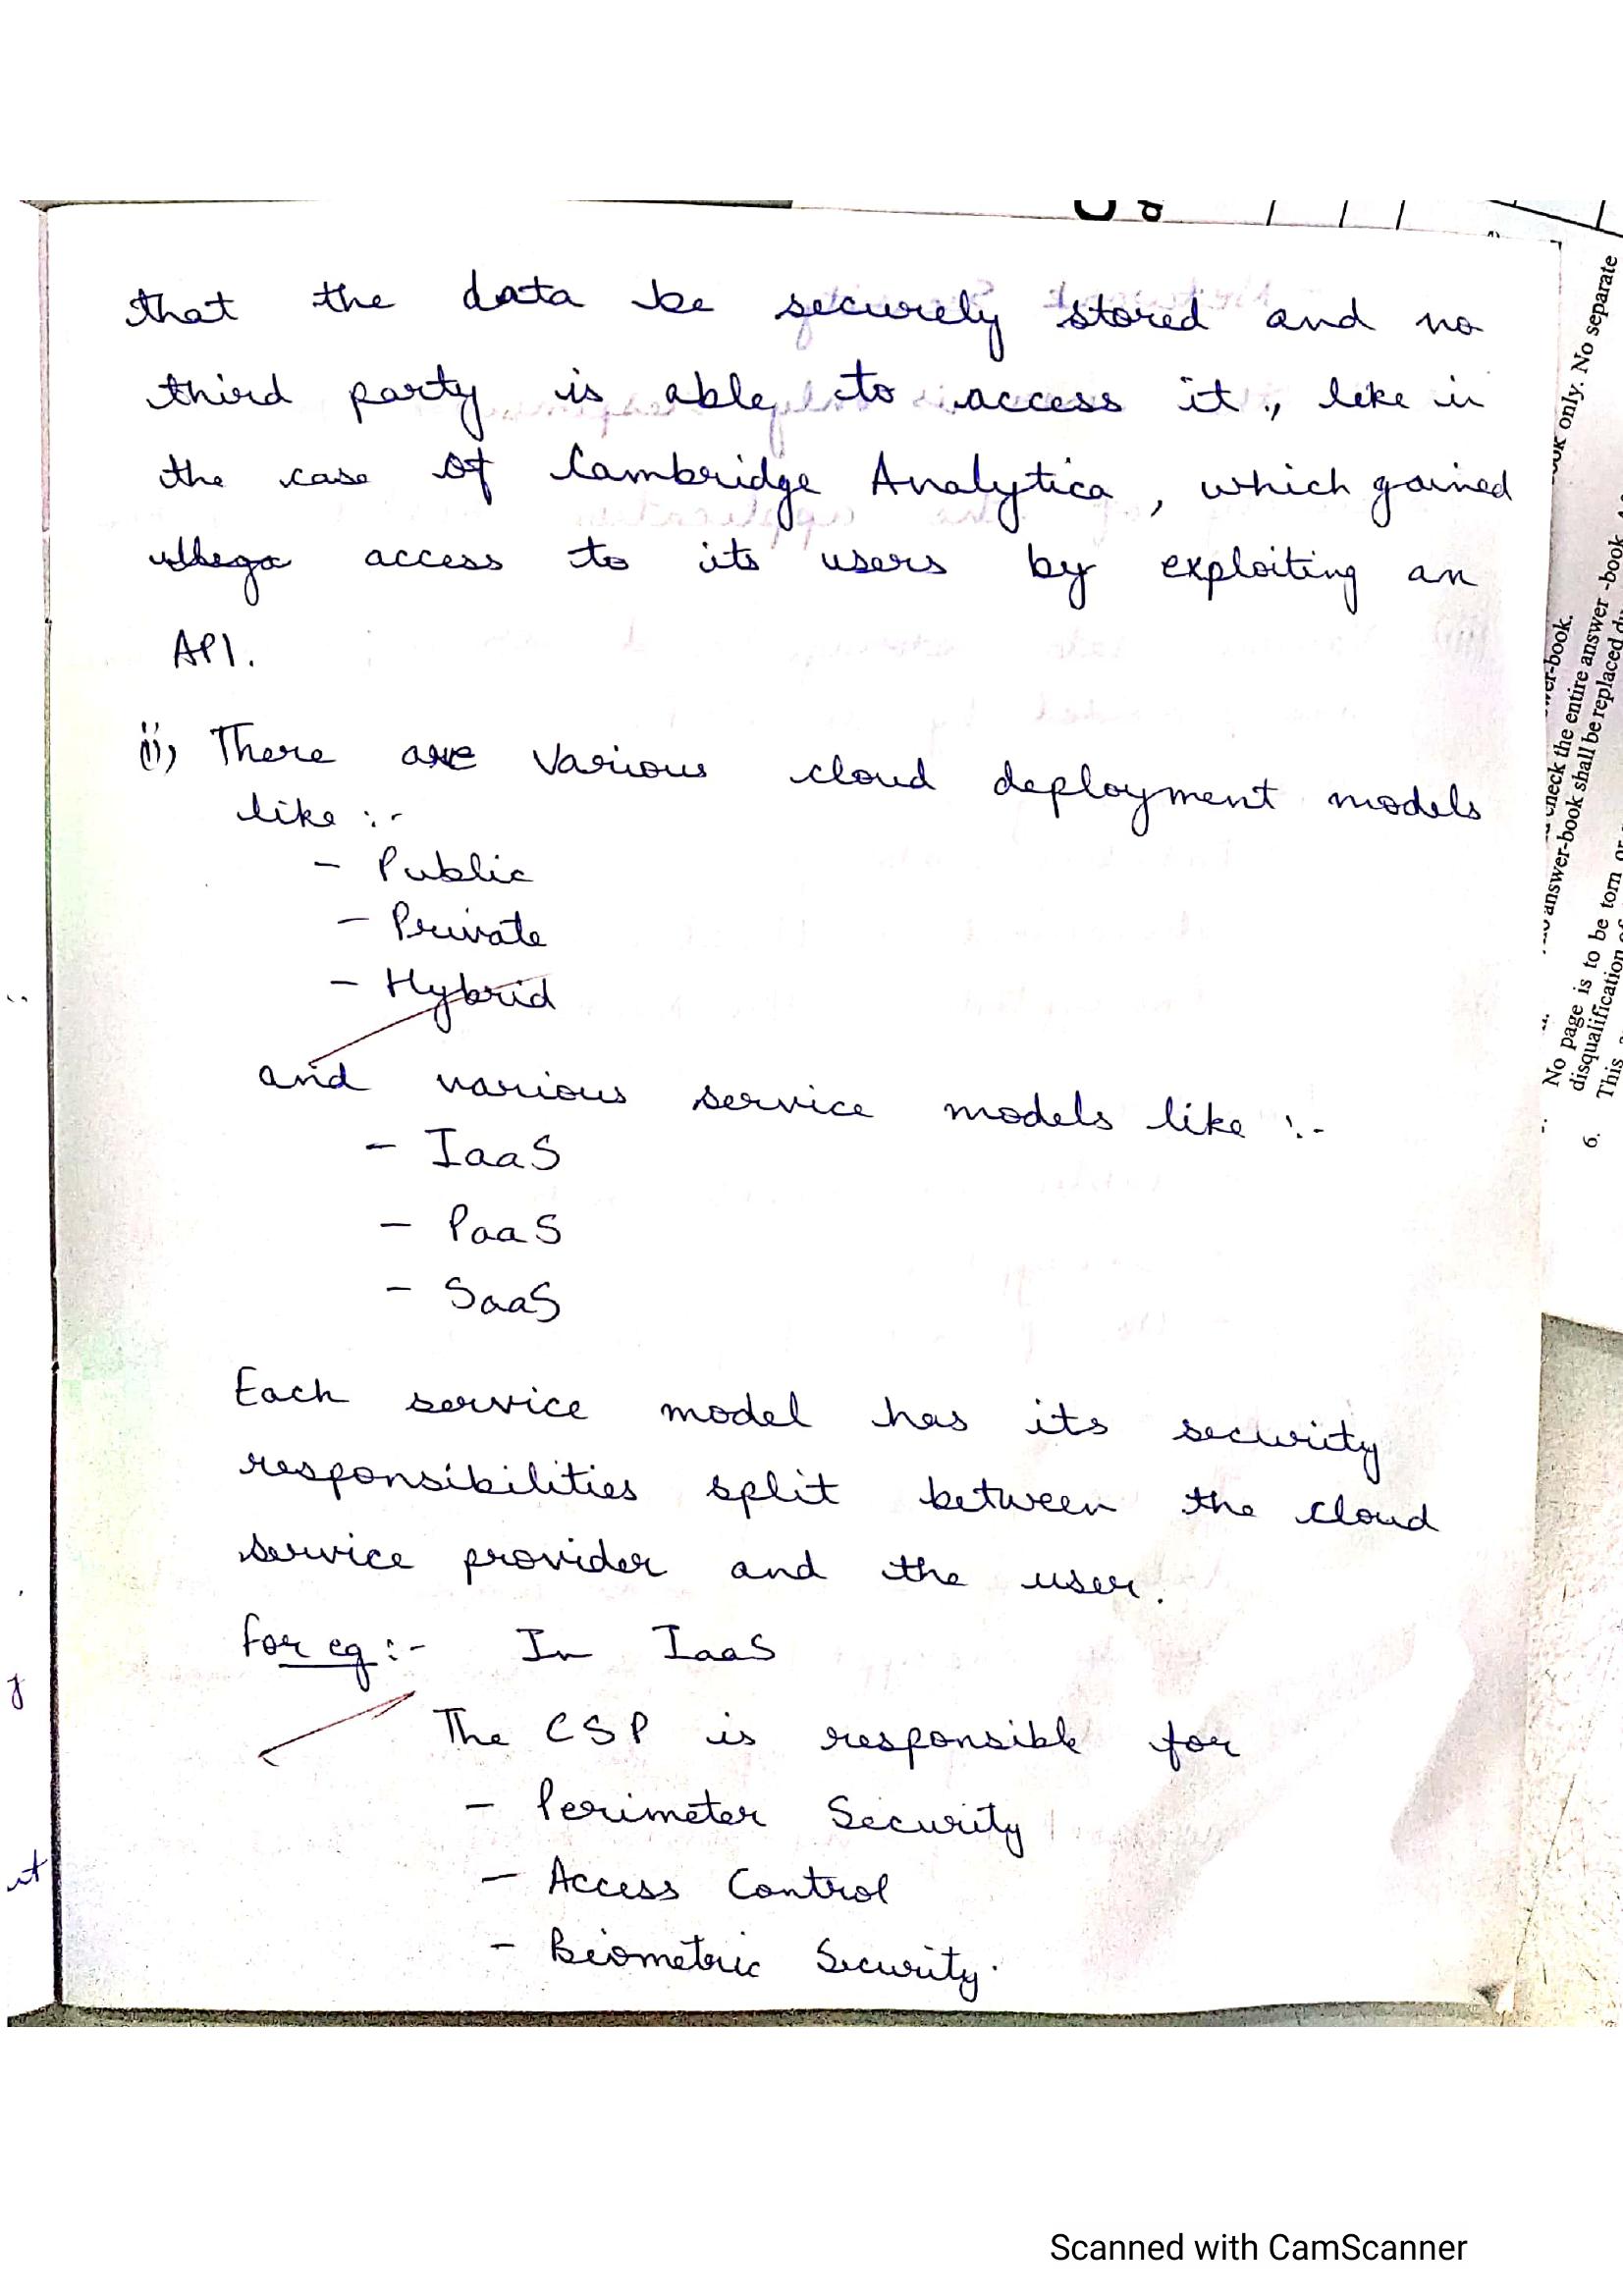 that the data be securely stored and no
third party is able to access it, like in
the case of Cambridge Analytica, which gained
access to its users by exploiting an
API.
ii) There are various cloud deployment models
like :-
- Public
- Private
- Hybrid
and various service models like :-
- IaaS
- PaaS
- SaaS
Each service model has its security
responsibilities split between the cloud
service provider and the user.
For eg :- In IaaS
The CSP is responsible for
- Perimeter Security
- Access Control
- Biometric Security.
only. No separate
check the entire answer-book.
answer-book shall be replaced
No page is to be torn or
disqualification of
6. This
Scanned with CamScanner